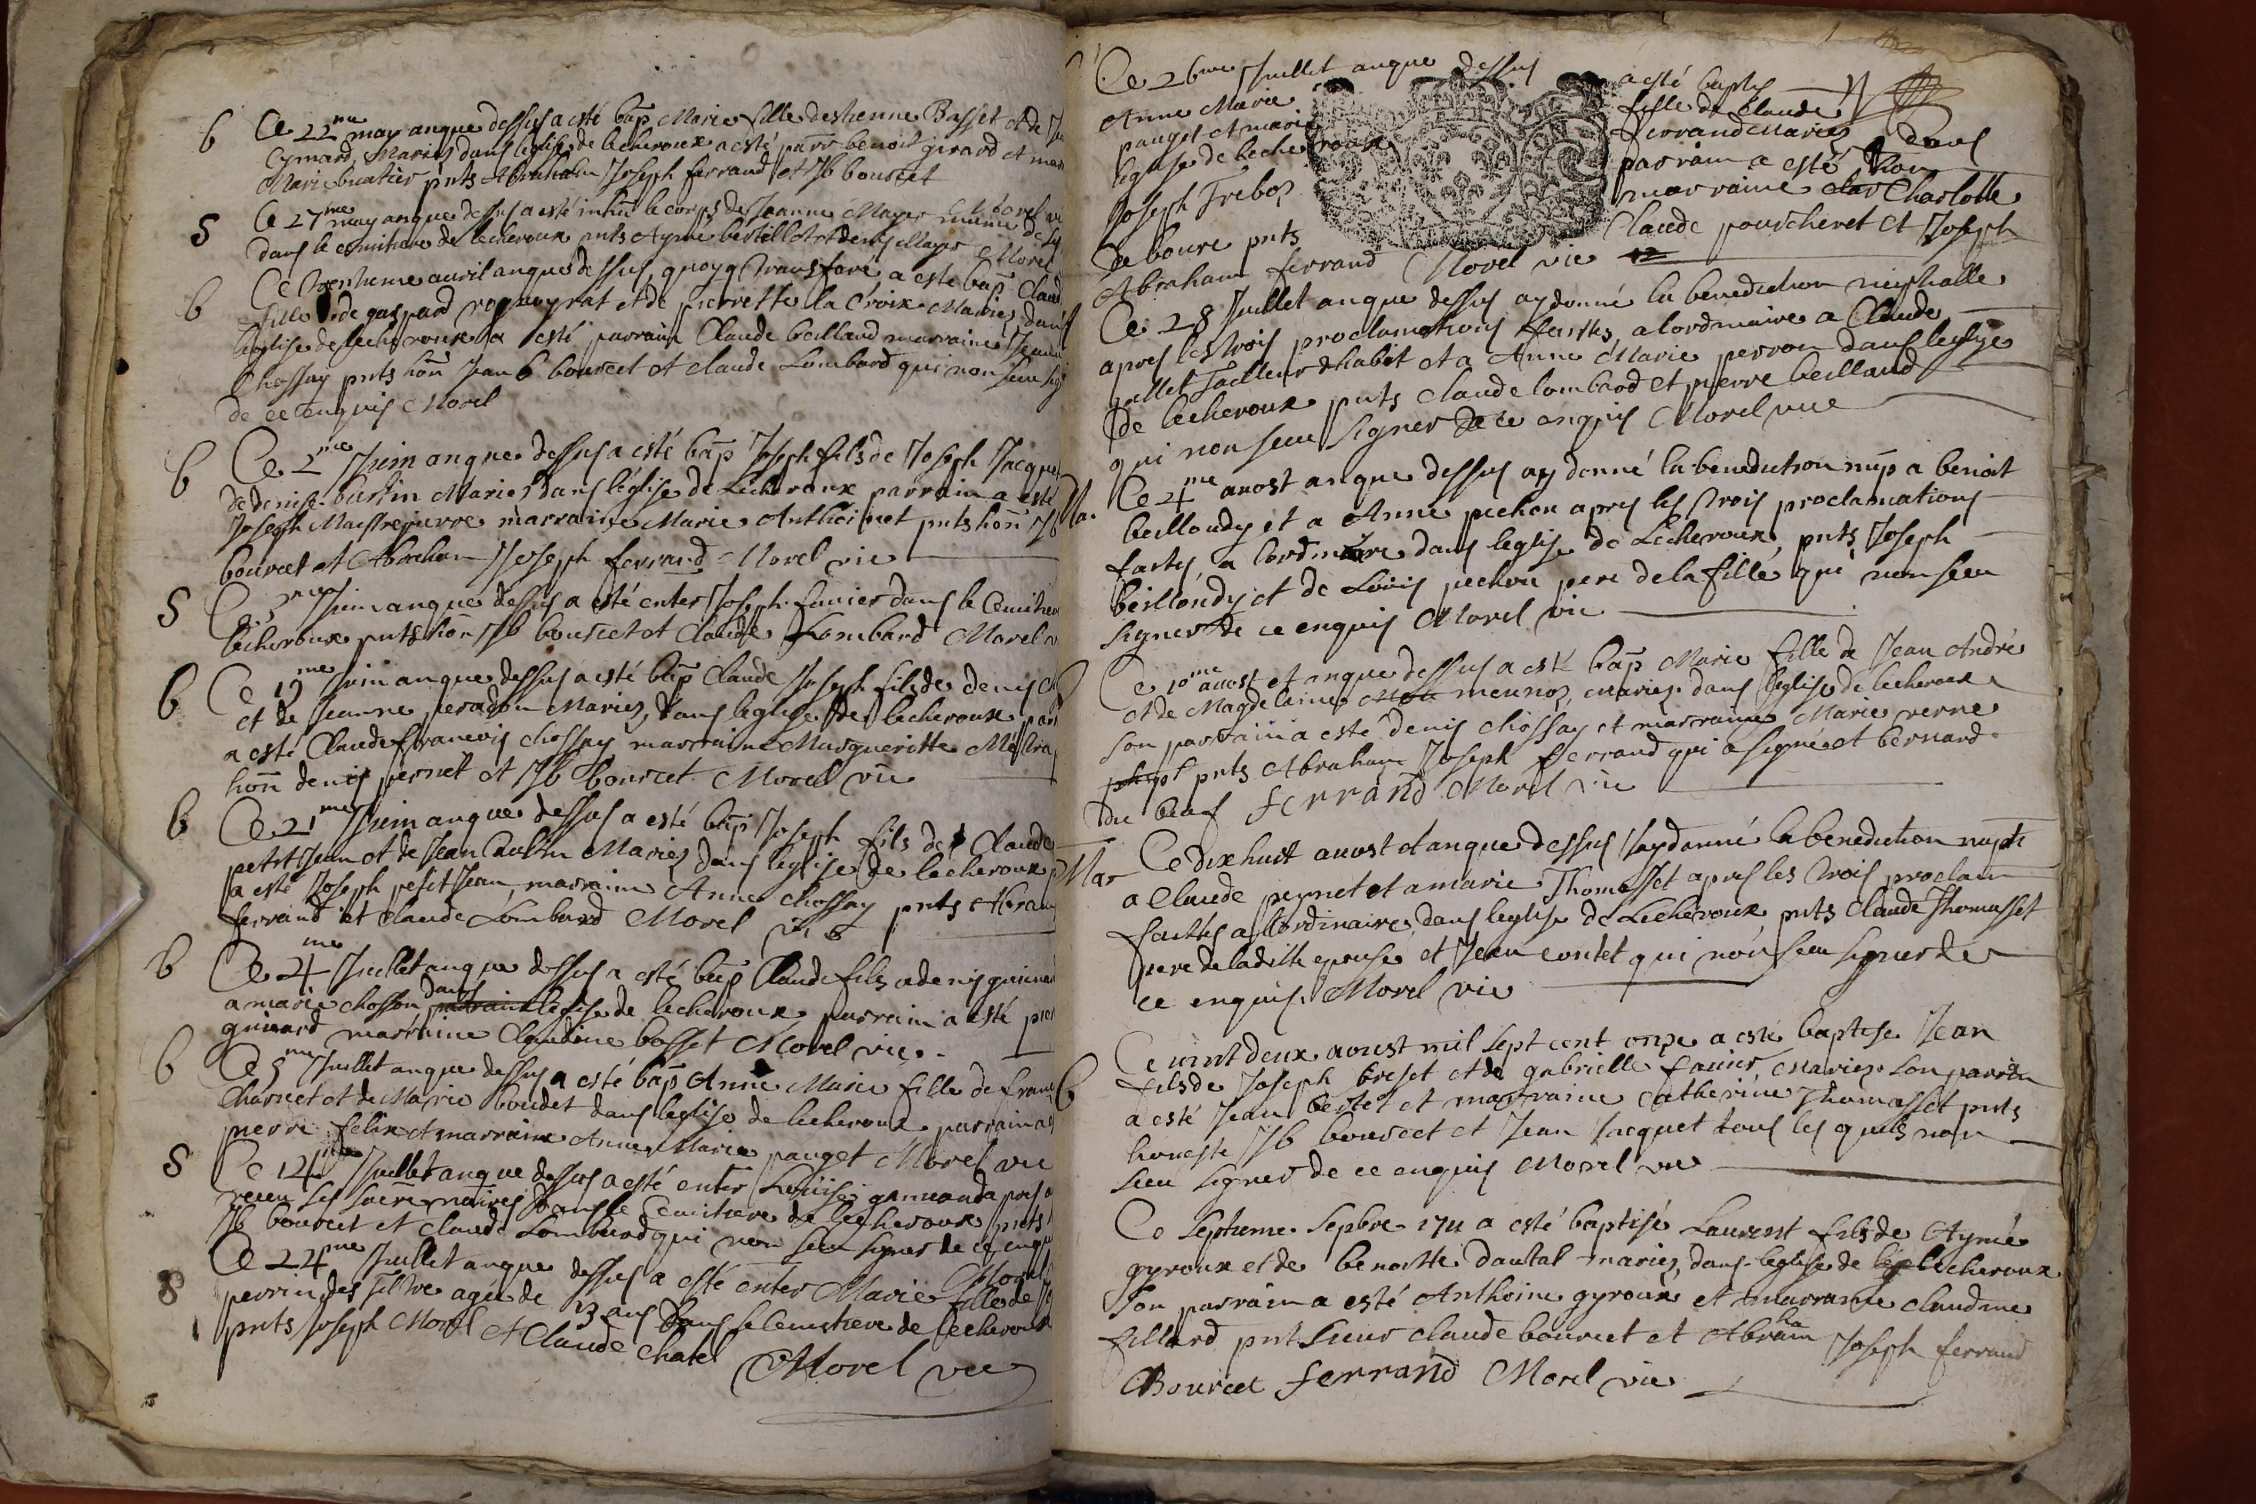 b Ce 22me may anque dessus a esté bap Marie fille destienne Basset et de
Eymard, Mariez dans leglise de lecheroux a esté parr benoit girard et mar
Marie buatier pnts Abraham Joseph ferrand et Jb bourcet
S Ce 27me may anque dessus a esté inhu le corps de Jeanne Mayer
dans le cemitiere de lecheroux pnts Aymé et denis Mayer Morel
b Ce trentieme auril anque dessus, quoyq transferé a esté bap Claud
fille de gaspard et de pierrette la Croix Mariez dans
leglise de lecheroux a esté parrain Claude beilland marraine Jeanne
Chossay pnts hon Jean b bourcet et claude Lombard qui non sceu sig
de ce enquis Morel
b Ce 2me Juin anque dessus a esté bap Joseph fils de Joseph Jacquet
de denise burtin Mariez dans leglise de Lecheroux parrain a esté
Joseph Maistrepierre marraine Marie Anthoinet pnts hon Jb
bourcet et Abraham Joseph ferrand Morel vic
S Ce Juin anque dessus a esté enter Joseph fanier dans le Cemitiere
lecheroux pnts hon Jb bourcet et Claude Lombard Morel v
b Ce 19me Juin anque dessus a esté bap Claude Joseph fils de denis
et de Jeanne peradon Mariez, dans leglise de lecheroux par
a esté Claude francois chossay marraine Margueritte
hon denis pernet et Jb bourcet Morel vic
b Ce 21me Juin anque dessus a esté bap Joseph fils de Claude
petit Jean et de Jean Mariez dans leglise de lecheroux p
a esté Joseph petit Jean, marraine Anne chossay pnts Abraham
ferrand et claude Lombard Morel vic
b Ce 4me Juillet anque dessus a esté bap Claude fils a denis guinard
a marie chosson dans leglise de lecheroux parrain a esté pier
guinard marraine Claudine basset Morel vic
b Ce 5me Juillet anque dessus a esté bap Anne Marie fille de fran
Charnet et de Marie boudet dans leglise de lecheroux parrain a es
pierre felix et marraine Anne Marie pauget Morel vic
S Ce 14me Juillet anque dessus a esté enter Louise apres a
receu ses sacremaires dans le Cemitiere de lecheroux pnts
Jb bourcet et claude Lombard qui non sceu signer de ce enqu
Ce 24me Juillet anque dessus a esté enter Marie fille de
8 perrin des agée de 13 ans dans le Cemitiere de lecheroux
pnts Joseph Morel et Claude chatel
Morel vic
Ce 26me Juillet anque dessus a esté baptes
Anne Marie fille de Claude
pauget et marie ferrand Mariez dans
leglise de lecheroux parrain a esté hon
Joseph Treboz marraine Charlotte
de boure pnts Claude pourcheret et Joseph
Abraham ferrand Morel vic
Ce 28 Juillet anque dessus ay donné la benediction nuptialle
apres les trois proclamations faittes a lordinaire a Claude
gallet Tailleur dhabit et a Anne Marie perron dans leglise
de lecheroux pnts claude lombard et pierre beilland
qui non sceu signer de ce enquis Morel vic
Mar Ce 4me aoust anque dessus ay donné la benediction nup a benoit
beilloudy et a Anne pechou apres les trois proclamations
faites a lordinaire dans leglise de Lecheroux, pnts Joseph
beilloudy et de Louis pechou pere de la fille qui non sceu
signer de ce enquis Morel vic
b Ce 10me aoust et anque dessus a esté bap Marie fille de Jean André
et de Magdelaine meunoz, mariez dans leglise de lecheroux
son parrain a esté denis chossay et marraine Marie verne
pnts Abraham Joseph ferrand qui a signé et bernard
du beuf ferrand Morel vic
Mar Ce dix huit aoust et anque dessus Jay donné la benediction nupti
a claude peynet et a marie Thomasset apres les trois proclam
faittes a lordinaire dans leglise de Lecheroux pnts claude Thomasset
pere de laditte epouse et Jean contet qui non sceu signer de
ce enquis. Morel vic
b Ce vint deux aoust mil sept cent onze a esté baptise Jean
fils de Joseph breset et de gabrielle fanier mariez son parrain
a esté Jean bertet et marraine catherine Thomasset pnts
honeste Jb bourcet et Jean Jacquet tous les quels non
sceu signer de ce enquis Morel vic
Ce septieme Sepbre 1711 a esté baptisé Laurent fils de Aymé
gyroux et de benoitte dautal mariez, dans leglise de lecheroux
son parrain a esté Anthoine gyroux et marraine claudine
fillard pnt sieur claude bourcet et Abraham Joseph ferrand
Bourcet ferrand Morel vic